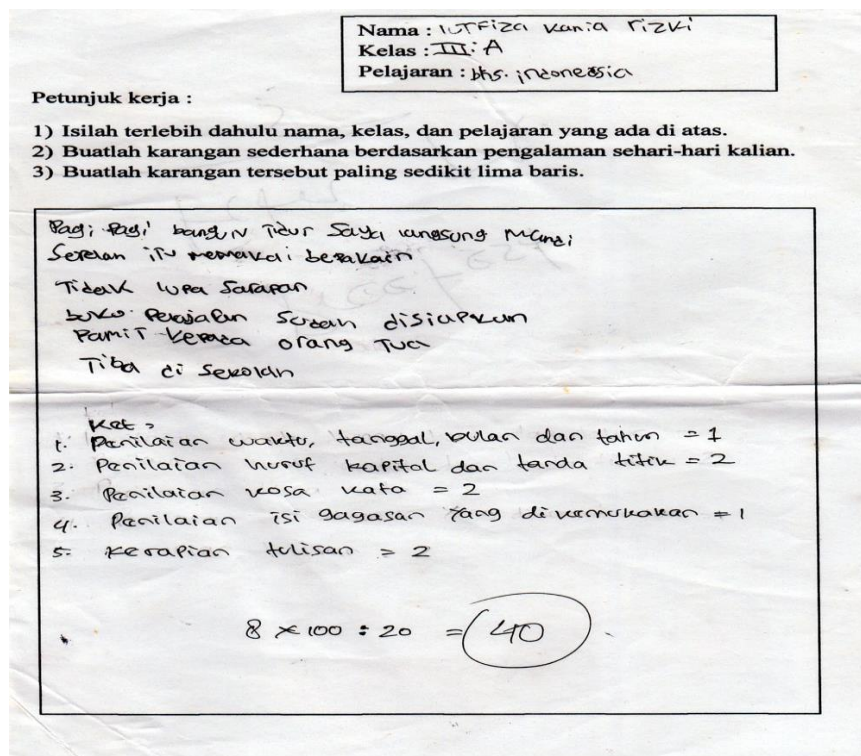 Nama : lutfiza kania rizki
Kelas : III. A
Pelajaran : bhs. indonessia
Petunjuk kerja :
1) Isilah terlebih dahulu nama, kelas, dan pelajaran yang ada di atas.
2) Buatlah karangan sederhana berdasarkan pengalaman sehari-hari kalian.
3) Buatlah karangan tersebut paling sedikit lima baris.
Pagi Pagi bangun Tidur Saya langsung Mandi
Setelah itu memakai
Tidak lupa Sarapan
buku Sudah disiapkan
Pamit kepada orang Tua
Tiba di Sekolah
Ket :
1. Penilaian waktu, tanggal, bulan dan tahun = 1
2. Penilaian huruf kapital dan tanda titik = 2
3. Penilaian kosa kata = 2
4. Penilaian isi gagasan yang dikemukakan = 1
5. Kerapian tulisan = 2
8 × 100 : 20 = 40